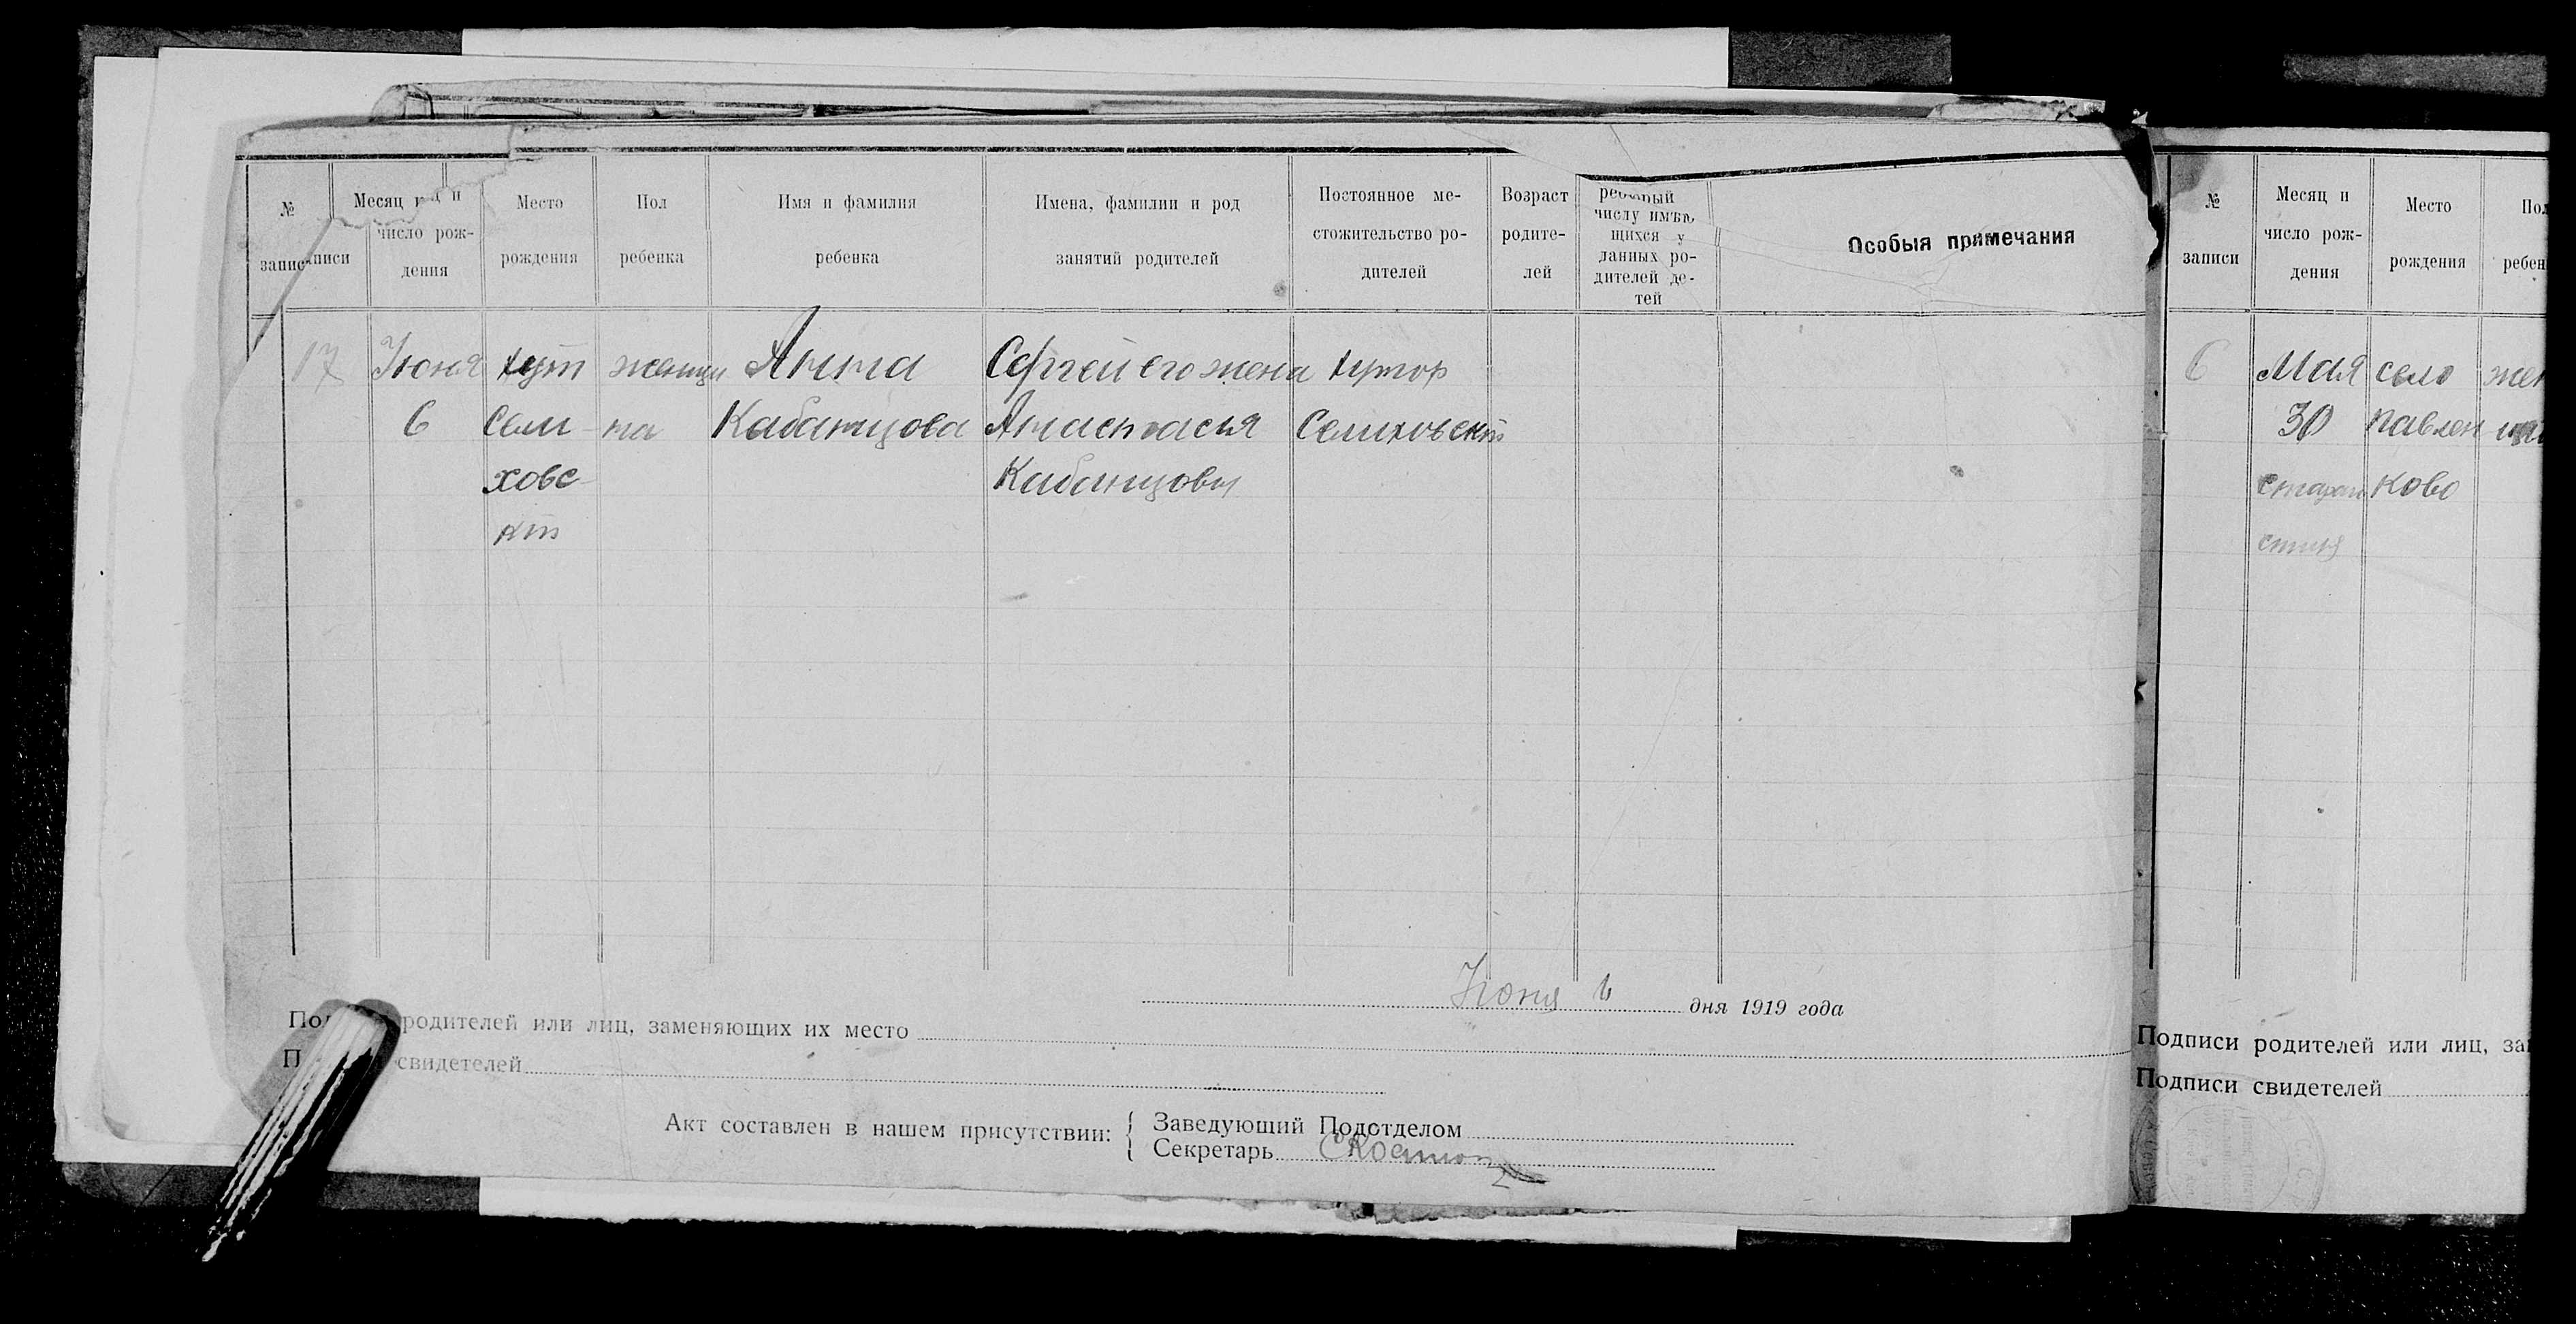 № записи
Месяц и число рож-дения
Место рождения
Пол ребенка
Имя и фамилия ребенка
Имена, фамилии и род занятий родителей
Постоянное ме-стожительство ро-дителей
Возраст родите-лей
числу имѣю-щихся у данных ро-дителей де-тей
Особыя примечания
17 Июня хут женщи Анна Сергей его жена хутор
6 Сели- на Кабанцова Анастасья Селиховскт
ховс- Кабанцовы
кт
Июня 6 дня 1919 года
родителей или лиц, заменяющих их место
свидетелей
Акт составлен в нашем присутствии:
Заведующий Подотделом
Секретарь
№ записи
Месяц и число рож-дения
Место рождения
6 Мая село
30 павлен
ково
Подписи родителей или лиц,
Подписи свидетелей